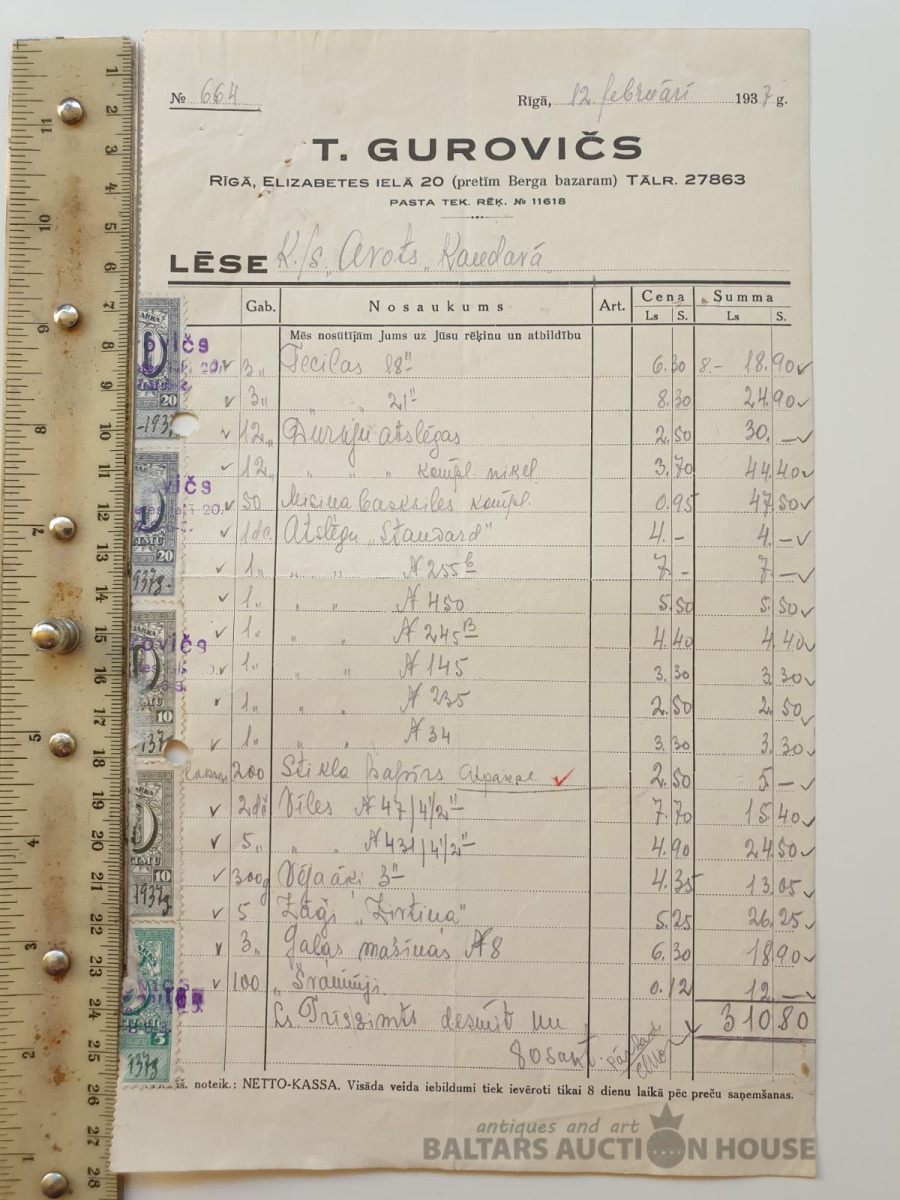 № 664 Rīgā, 12. februārī 1937 g.
T. GUROVIČS
RĪGĀ, ELIZABETES IELĀ 20 (pretīm Berga bazaram) TĀLR. 27863
PASTA TEK. RĒĶ. № 11618
LĒSE K./s. "Avots" Kandavā
Gab. Nosaukums Art. Cena Summa
Ls S. Ls S.
Mēs nosūtījām Jums uz Jūsu rēķinu un atbildību
3 " Tecilas 18" 6.30 8.- 18.90
3 " " " 21" 8.30 24.90
12 " Durvju atslēgas 2.50 30.—
12 " " " " kompl. nikel 3.70 44.40
50 kompl. 0.95 47.50
1 dc. Atslēgu "Standard" 4.- 4.—
1 " " " № 255 b 7.- 7.—
1 " " " № 450 5.50 5.50
1 " " " № 245 B 4.40 4.40
1 " " " № 145 3.30 3.30
1 " " " № 235 2.50 2.50
1 " " " № 34 3.30 3.30
200 Stikla papīrs 2.50 5.—
2 dc Vīles № 47/4½" 7.70 15.40
5 " " " № 431/4½" 4.90 24.50
300g Vēja āķi 3" 4.35 13.05
5 Zāģi 5.25 26.25
3 " Gaļas mašīnas № 8 6.30 18.90
100 0.12 12.—
Ls. Trīssimts desmit un 310 80
80 sant.
noteik.: NETTO-KASSA. Visāda veida iebildumi tiek ievēroti tikai 8 dienu laikā pēc preču saņemšanas.
antiques and art
BALTARS AUCTION HOUSE